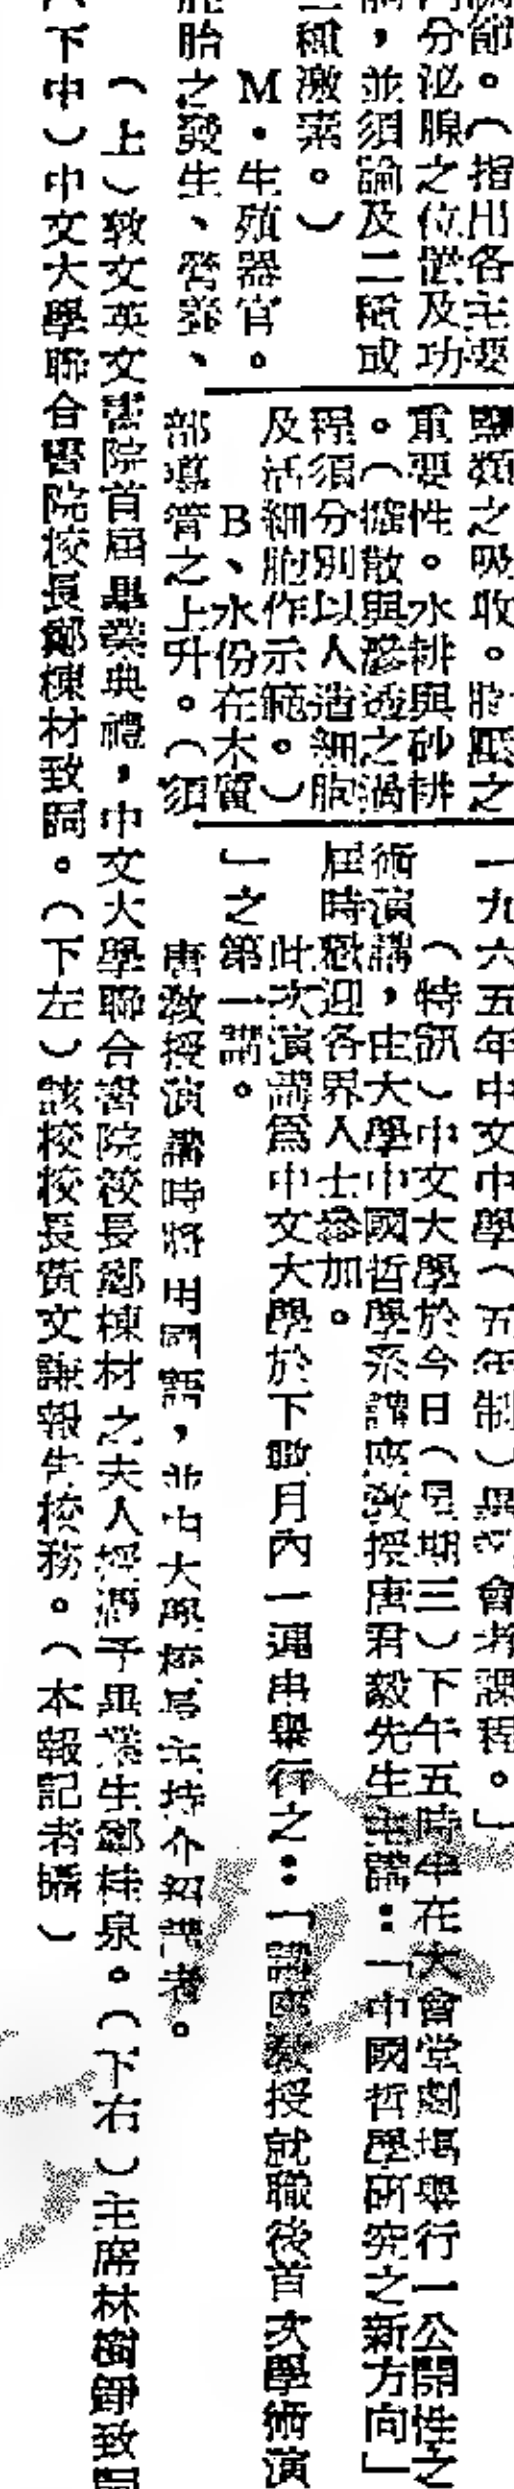 節。（指出各主要
內分泌腺之位置及功
，並須論及二種或
二種激素。）
M·生殖器官。
胚胎之發生、營養、
鹽類之吸收。膨壓之
重要性。水耕與砂耕
。（擴散與滲透之過
程須分別以人造細胞
及活細胞作示範。）
B、水份在木質
部導管之上升。（須
一九六五年中文中學（五年制）畢業會考課程。」
（特訊）中文大學於今日（星期三）下午五時半在大會堂劇塲舉行一公開性之
術演講，由大學中國哲學系講座教授唐君毅先生主講：「中國哲學研究之新方向」
屆時歡迎各界人士參加。
此次演講爲中文大學於下數月內一連串舉行之：「講座教授就職後首次學術演
」之第一講。
唐教授演講時將用國語，並由大學校長主持介紹講者。
（上）敦文英文書院首屆畢業典禮，中文大學聯合書院校長鄭棟材之夫人授憑予畢業生鄭桂泉。（下右）主席林樹錚致詞
（下中）中文大學聯合書院校長鄭棟材致詞。（下左）該校校長黃文謙報告校務。（本報記者攝）